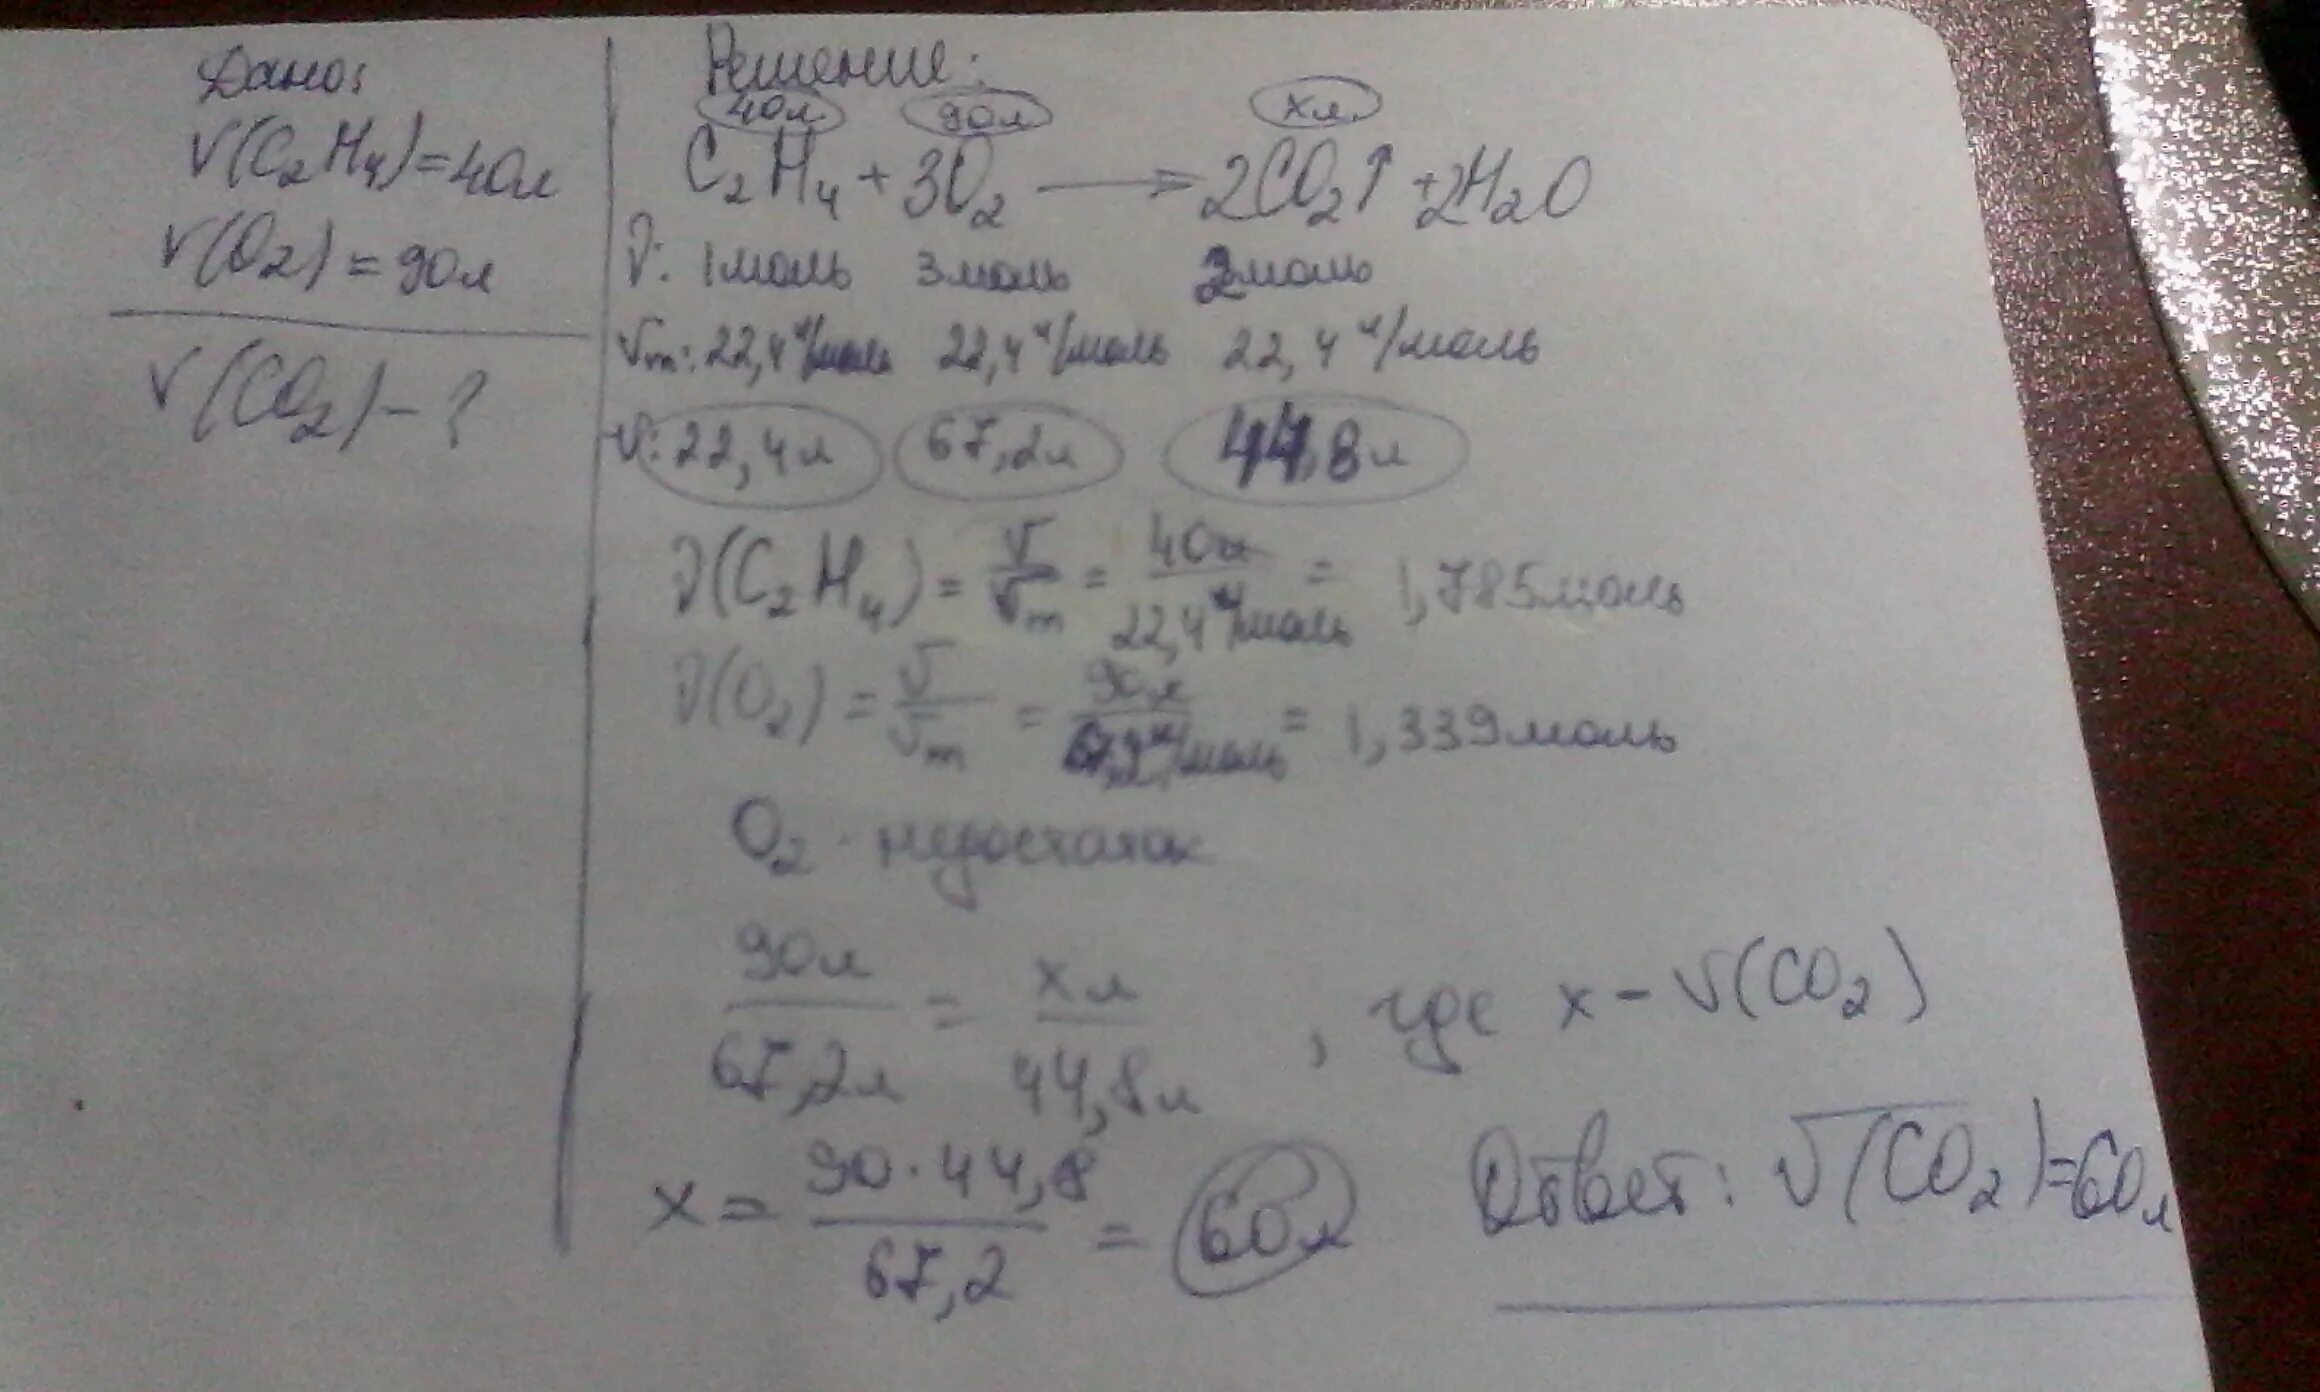 Дано:
V(C₂H₄)=40л
V(O₂)=90л
V(CO₂)-?
Решение:
40л 90л xл
C₂H₄ + 3O₂ → 2CO₂↑ +2H₂O
ν: 1моль 3моль 2моль
Vm: 22,4 л/моль 22,4 л/моль 22,4 л/моль
V: 22,4л 67,2л 44,8л
ν(C₂H₄) = V/Vm = 40л/22,4 л/моль = 1,785моль
ν(O₂) = V/Vm = 90л/67,2 л/моль = 1,339моль
O₂ - недостаток
90л/67,2л = xл/44,8л , где x - V(CO₂)
x = 90·44,8/67,2 = 60л
Ответ: V(CO₂)=60л